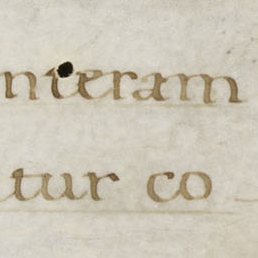 nteram
tur co